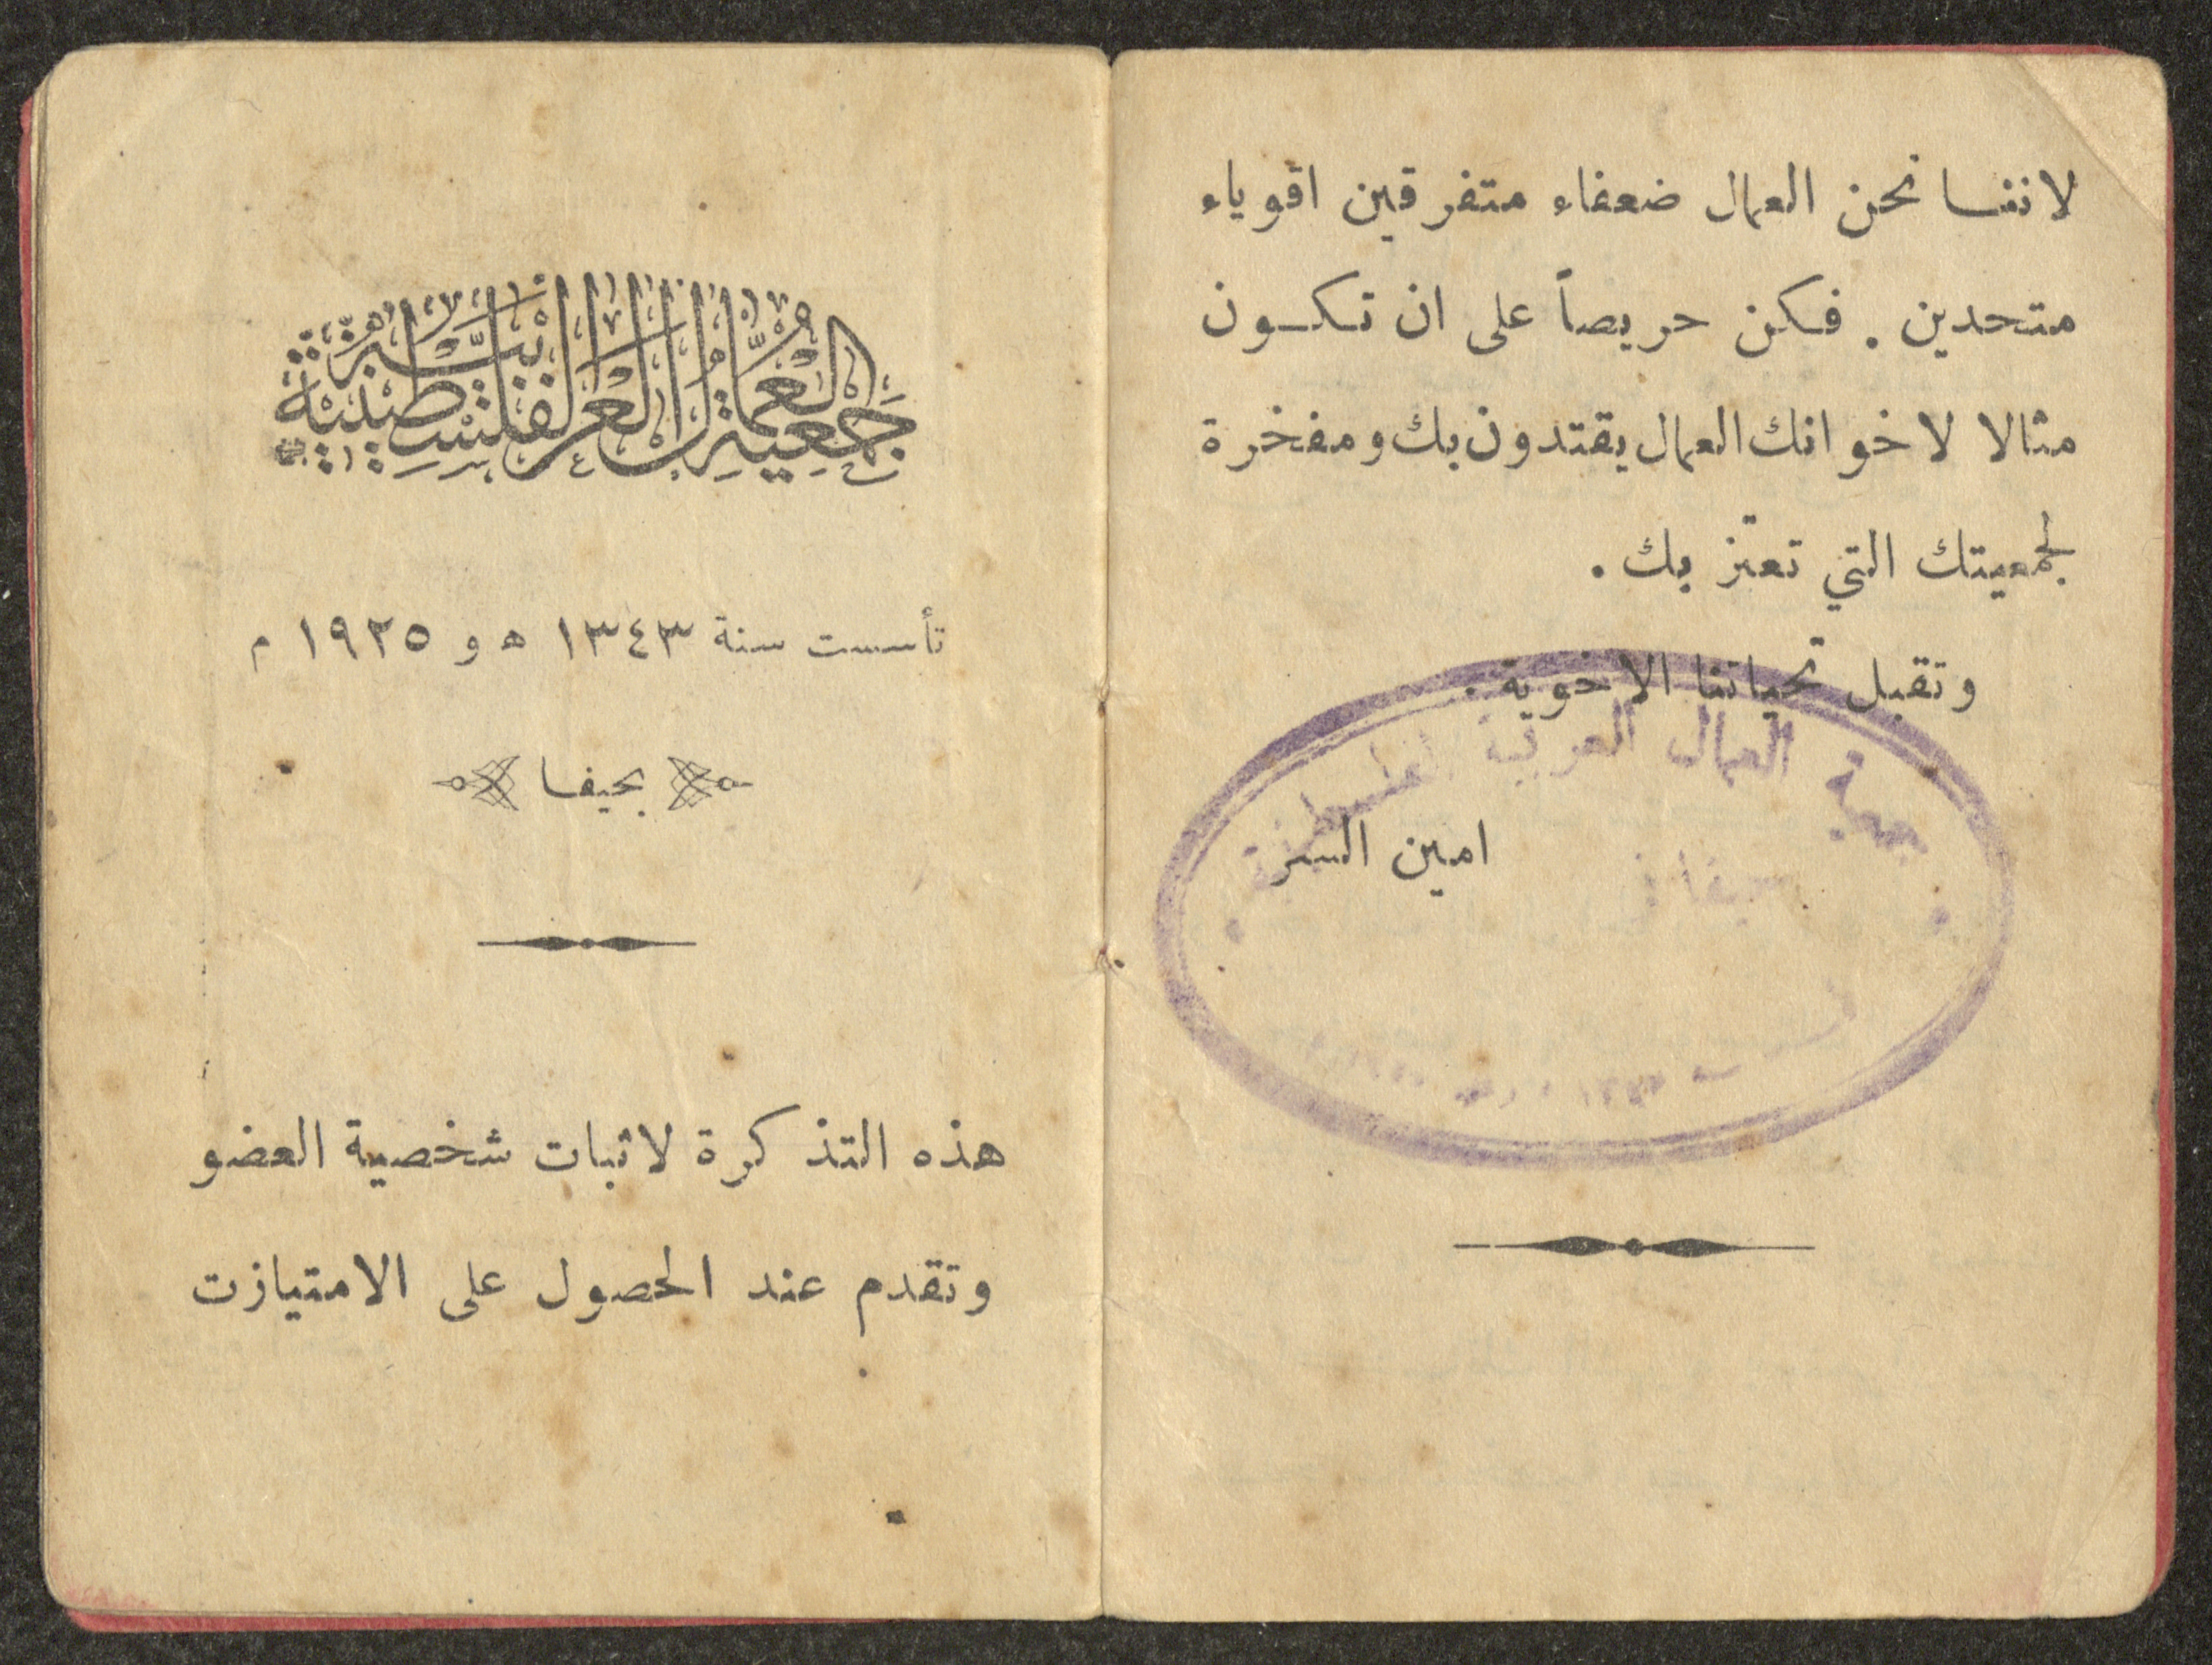 لاننا نحن العمال ضعفاء متفرقين اقوياء
متحدين . فكن حريصاً على ان تكون
مثالا لاخوانك العمال يقتدون بك ومفخرة
لجمعيتك التي تعتز بك .
وتقبل تحياتنا الاخوية .
جمعية العمال العربية الفلسطينية
بحيفا
امين السر
جمعية العمال العربية الفلسطينية
تأسست سنة ١٣٤٣ ه و ١٩٢٥ م
بحيفا
هذه التذكرة لاثبات شخصية العضو
وتقدم عند الحصول على الامتيازت